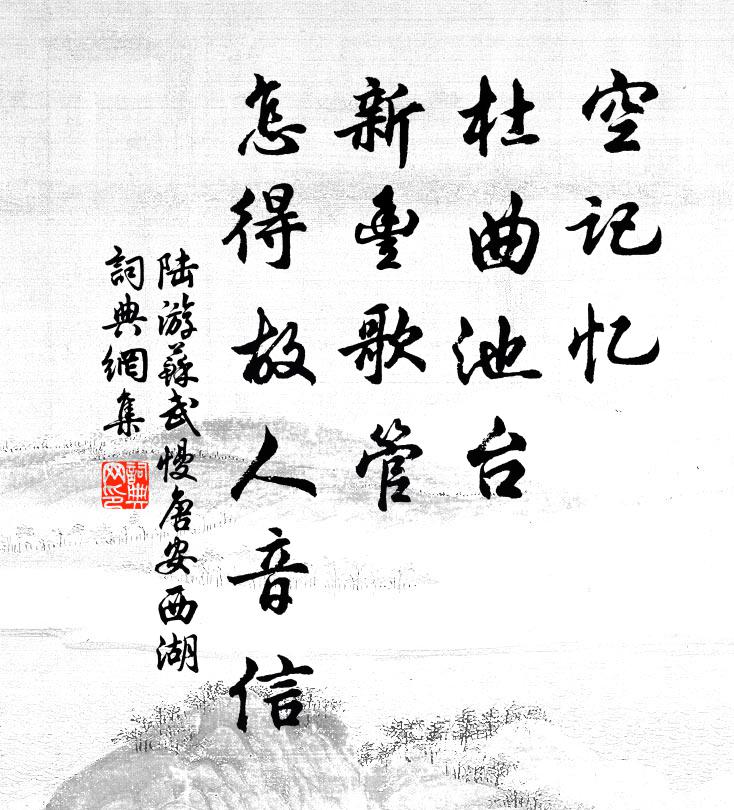 空记忆
杜曲池台
新豐歌管
怎得故人音信
陆游蘇武慢唐安西湖
詞典網集